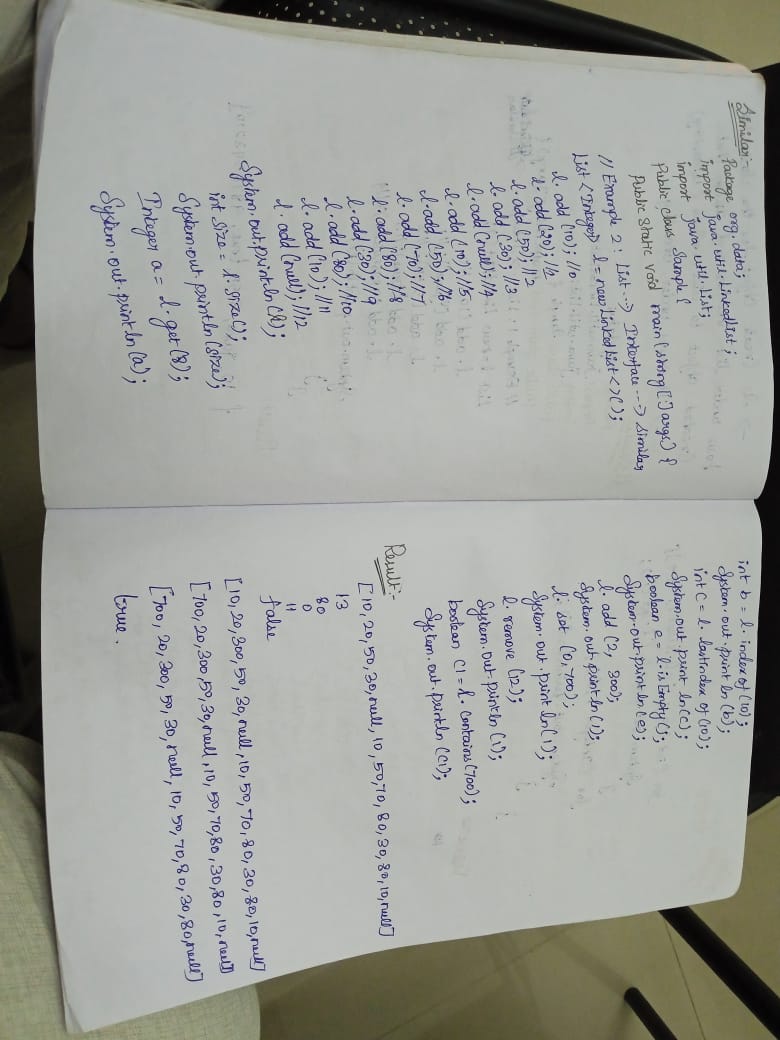 Similar:-
Package org.data;
import java.util.LinkedList;
import java.util.List;
Public class Sample {
Public Static void main (string[] args) {
// Example 2: List --> Interface ---> Similar
List <Integer> l = new Linked List <>();
l. add (10); //0
l. add (20); //1
l. add (50); //2
l. add (30); //3
l. add (null); //4
l. add (10); //5
l. add (50); //6
l. add (70); //7
l. add (80); //8
l. add (30); //9
l. add (80); //10
l. add (10); //11
l. add (null); //12
System.out.println (l);
int Size = l. Size();
System.out. println (size);
Integer a = l. get (8);
System.out.print ln (a);
int b = l. index of (10);
System.out.print ln (b);
int C = l. lastindex of (10);
System.out.print ln(c);
boolean e = l. is Empty ();
System.out.print ln (e);
l. add (2, 300);
System.out.print ln (l);
l. set (0,700);
System.out.print ln (l);
l. remove (12);
System.out.println (l);
boolean C1 = l. Contains (700);
System.out.println (C1);
Result:-
[10, 20, 50, 30, null, 10, 50, 70, 80, 30, 80, 10, null]
13
80
0
11
false
[10, 20, 300, 50, 30, null, 10, 50, 70, 80, 30, 80, 10, null]
[700, 20, 300, 50, 30, null, 10, 50, 70, 80, 30, 80, 10, null]
[700, 20, 300, 50, 30, null, 10, 50, 70, 80, 30, 80, null]
true.